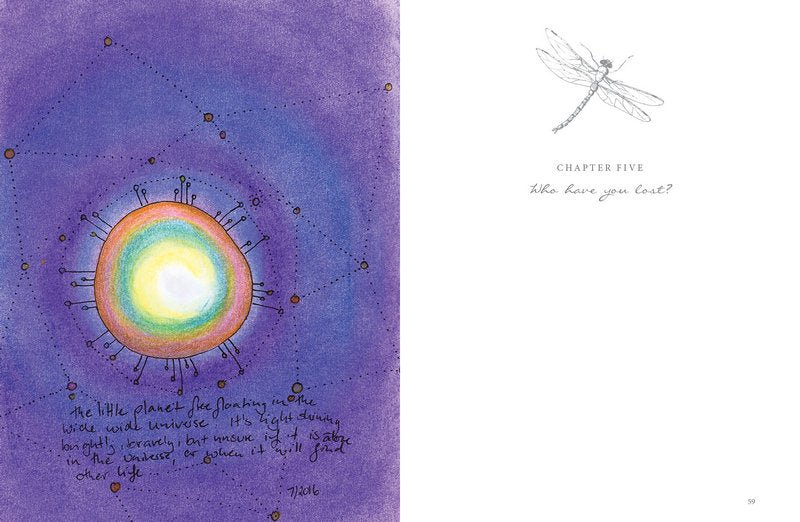 the little planet free floating in the
wide wide universe. It's light shining
brightly, bravely, but unsure if it is alone
in the universe, or when it will find
other life
7/2016
CHAPTER FIVE
Who have you lost?
59